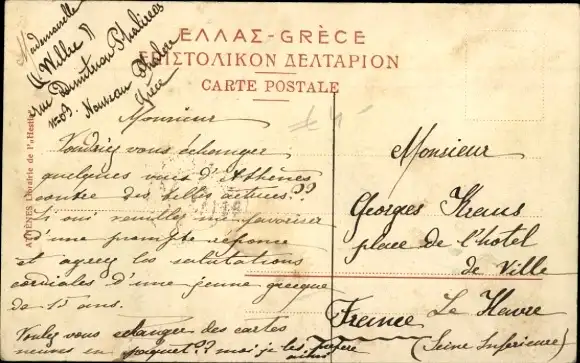 Mademoiselle
"Willie"
rue Dimitriou Phalireos
no 3. Nouveau Phalère
Grèce
ΕΛΛΑΣ-GRÈCE
ΕΠΙΣΤΟΛΙΚΟΝ ΔΕΛΤΑΡΙΟΝ
CARTE POSTALE
ATHÈNES Librairie de l'"Hestia
Monsieur
Voudriez vous échanger
quelques vues d'Athènes
contre des belles actrices??
Si oui veuillez me favoriser
d'une prompte réponse
et agréez les salutations
cordiales d'une jeune grecque
de 15 ans.
Voulez vous echanger des cartes
neuves en paquet?? moi je les préfère
ainsi
Monsieur
Georges Kraus
place de l'hotel
de Ville
Le Havre
France (Seine Inferieure)